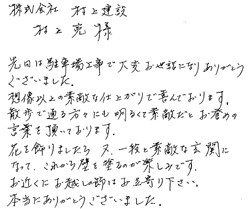 株式会社 村上建設
村上亮様
先日は駐車場工事で大変お世話になりありがとう
ございました。
想像以上の素敵な仕上がりで喜んでおります。
散歩で通る方々にも明るくて素敵だとお誉めの
言葉を頂いております。
花を飾りましたら又、一段と素敵な玄関に
なって、これから壁を塗るのが楽しみです。
お近くにお越しの節はお立寄り下さい。
本当にありがとうございました。